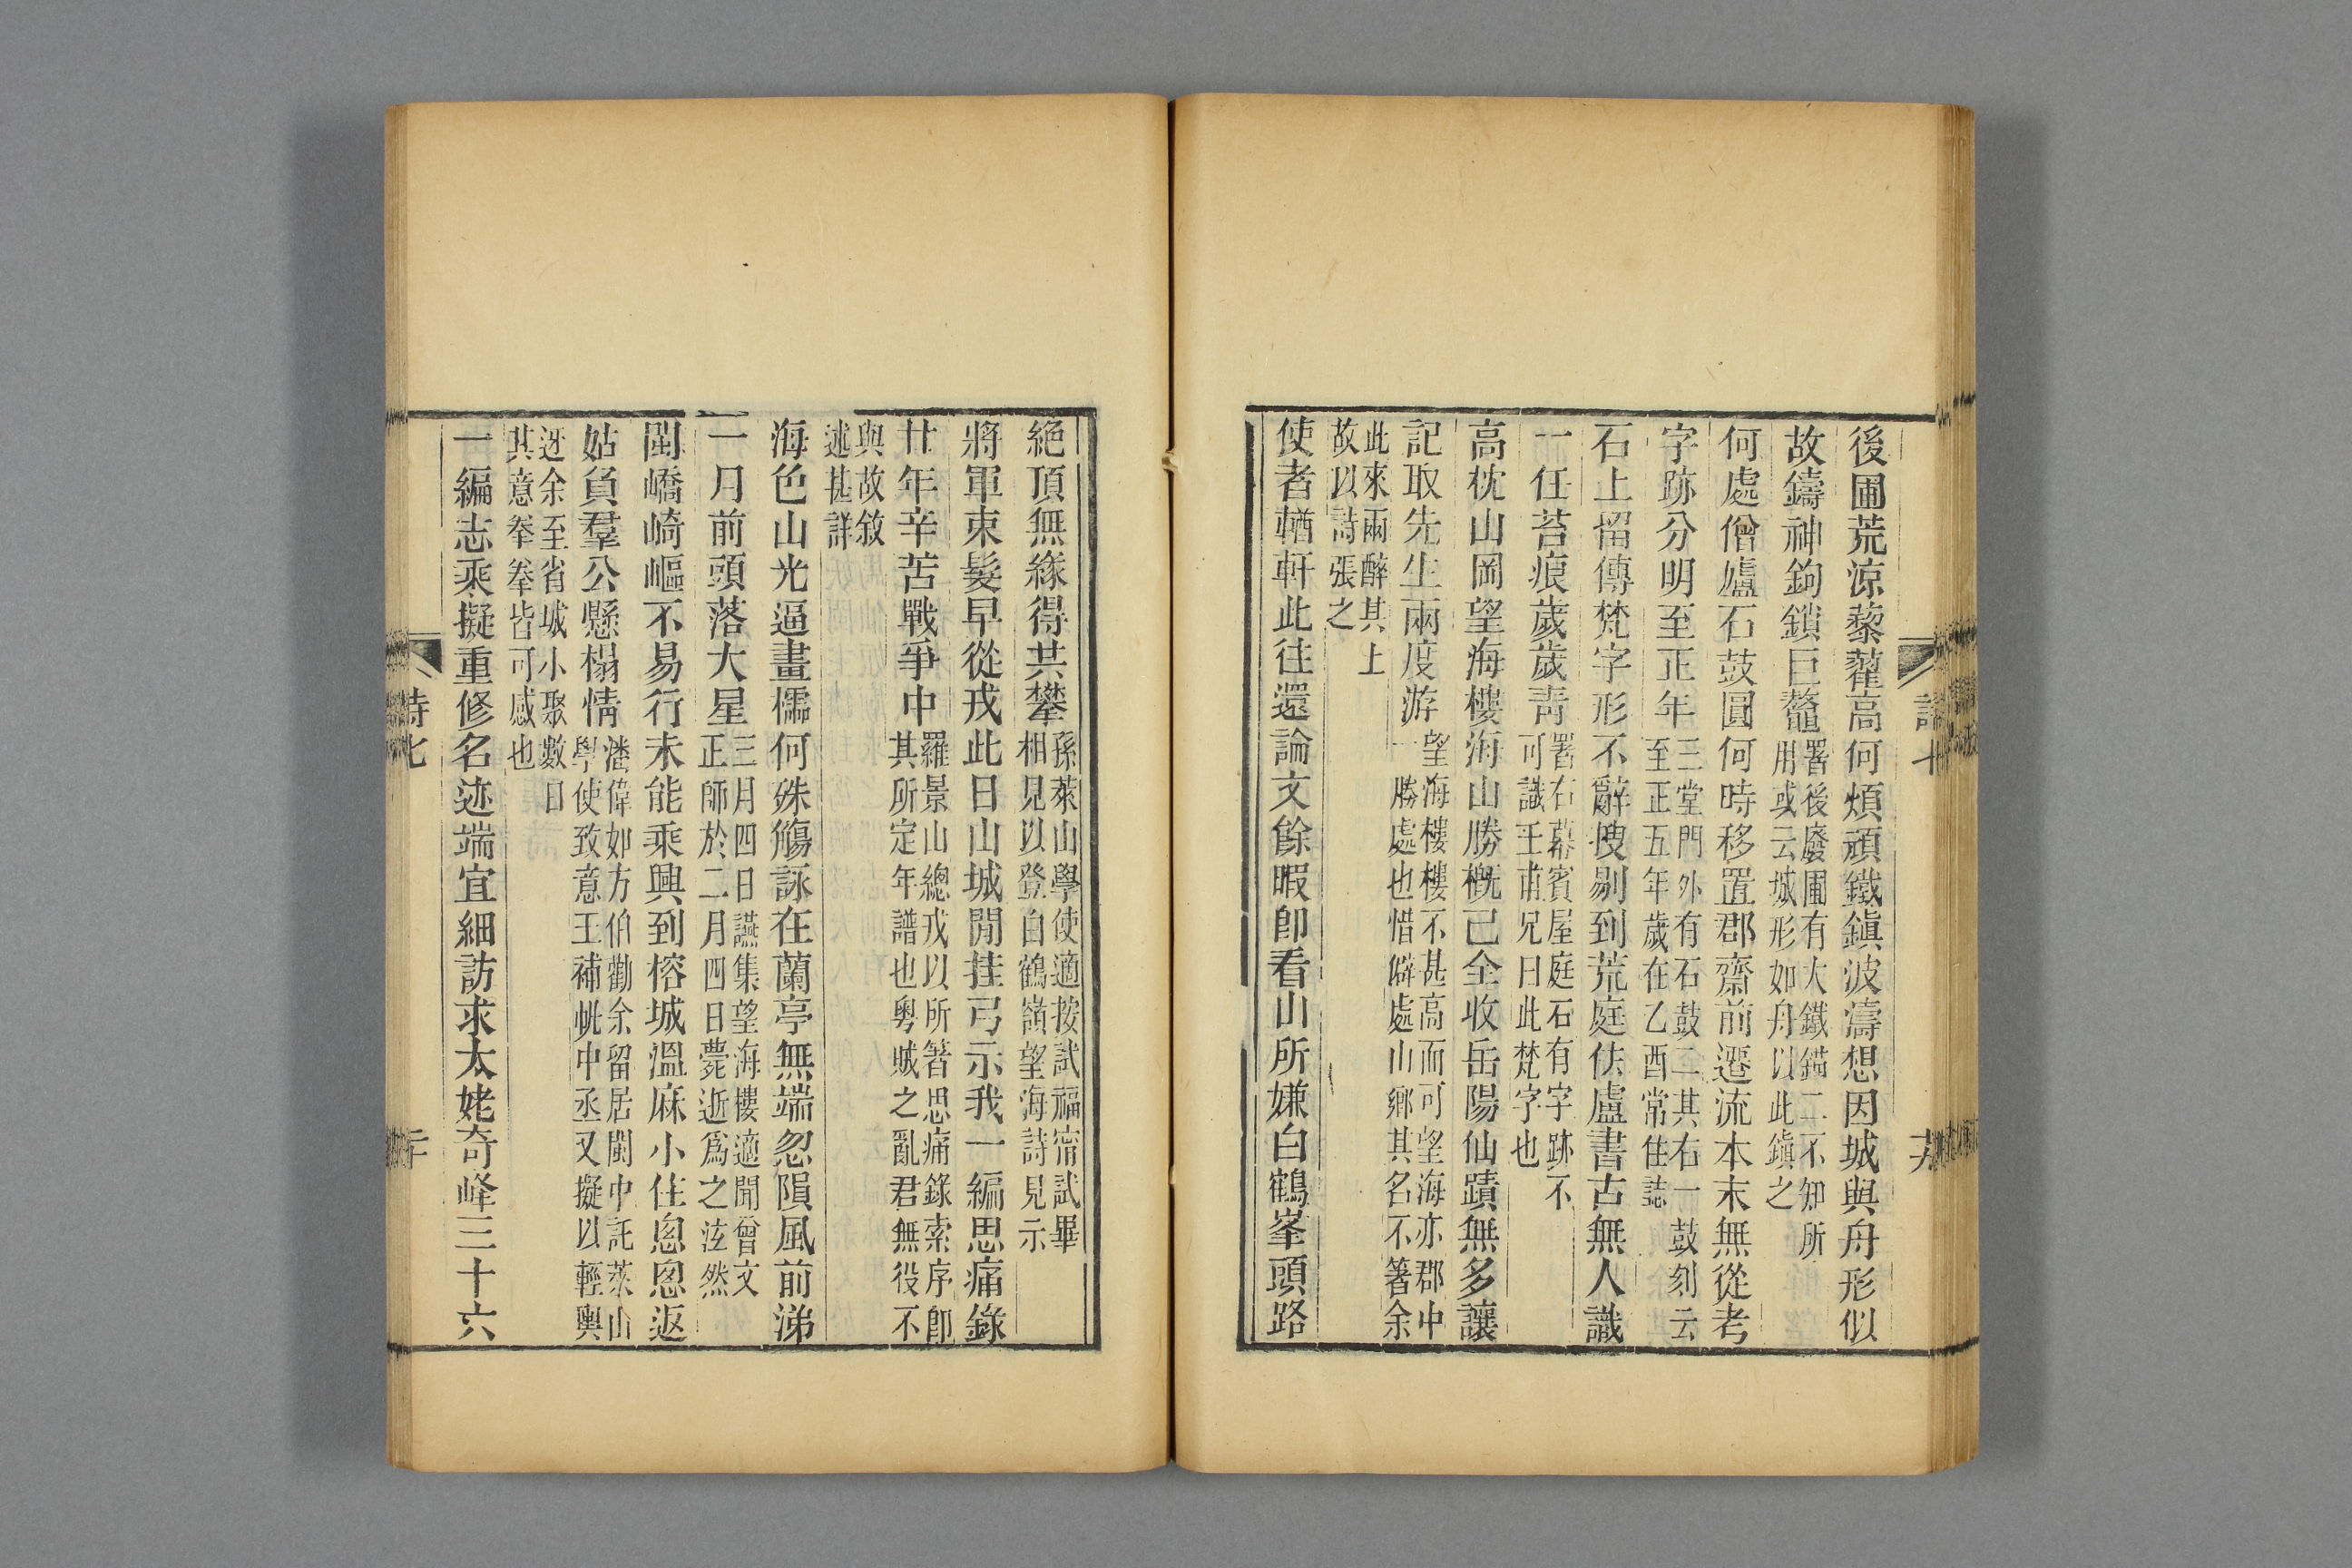 後圃荒涼藜藋高何煩頑鐵鎭波濤想因城與舟形似
故鑄神鉤鎖巨鼇署後廢圃有大鐵錨二不知所
用或云城形如舟以此鎭之
何處僧廬石鼓圓何時移置郡齋前遷流本末無從考
字跡分明至正年三堂門外有石鼓二其右一鼓刻云
至正五年歲在乙酉常住誌
石上留傳梵字形不辭搜剔到荒庭佉盧書古無人識
一任苔痕歲歲靑署右幕賓屋庭石有字跡不
可識王甫兄曰此梵字也
高枕山岡望海樓海山勝槪已全收岳陽仙蹟無多讓
記取先生兩度游望海樓樓不甚高而可望海亦郡中
一勝處也惜僻處山鄉其名不箸余
此來兩醉其上
故以詩張之
使者輶軒此往還論文餘暇卽看山所嫌白鶴峯頭路
絕頂無緣得共攀孫萊山學使適按試福甯試畢
相見以登白鶴嶺望海詩見示
將軍束髮早從戎此日山城閒挂弓示我一編思痛錄
廿年辛苦戰爭中羅景山總戎以所箸思痛錄索序卽
其所定年譜也粵賊之亂君無役不
與故敘
述甚詳
海色山光逼畫櫺何殊觴詠在蘭亭無端忽隕風前涕
一月前頭落大星三月四日讌集望海樓適聞曾文
正師於二月四日薨逝爲之泫然
閩嶠崎嶇不易行未能乘興到榕城溫麻小住悤悤返
姑負羣公懸榻情潘偉如方伯勸余留居閩中託萊山
學使致意王補帆中丞又擬以輕輿
迓余至省城小聚數日
其意拳拳皆可感也
一編志乘擬重修名迹端宜細訪求太姥奇峰三十六